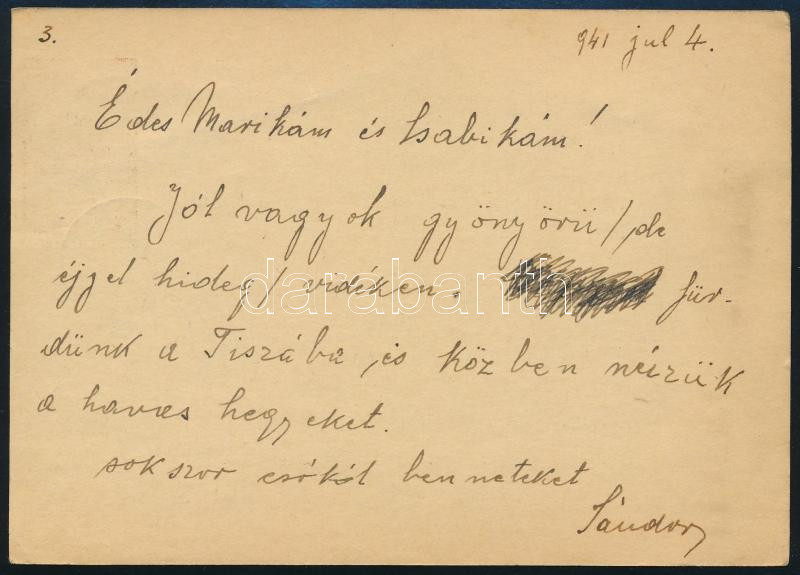 3.
941 jul 4.
Édes Marikám és Csabikám!
Jól vagyok gyönyörü /de
éjjel hideg/ vidéken. für-
dünk a Tiszába, és közben nézzük
a havas hegyeket.
sokszor csókól benneteket
Sándor
darabanth